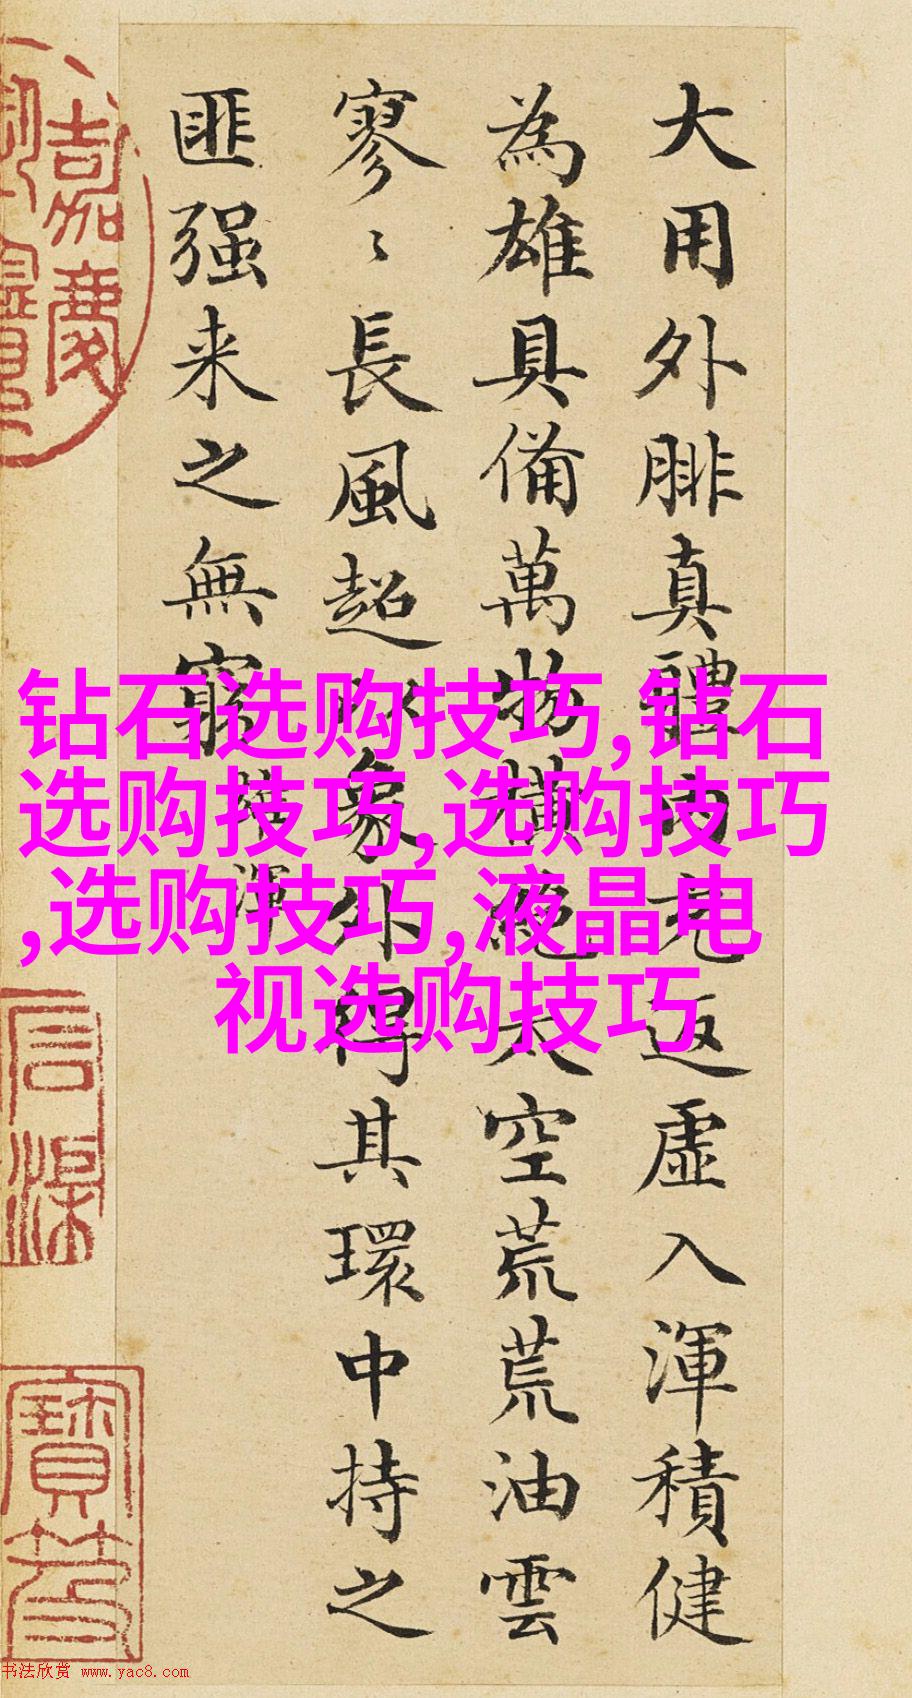 大用外腓真體内充返虛入渾積健
為雄具備萬物橫絕太空荒荒油雲
寥〻長風超以象外得其環中持之
匪强来之無窮
雄渾
嘉慶
寶笈
钻石选购技巧,钻石
选购技巧,选购技巧
,选购技巧,液晶电
视选购技巧
书法欣赏 www.yac8.com